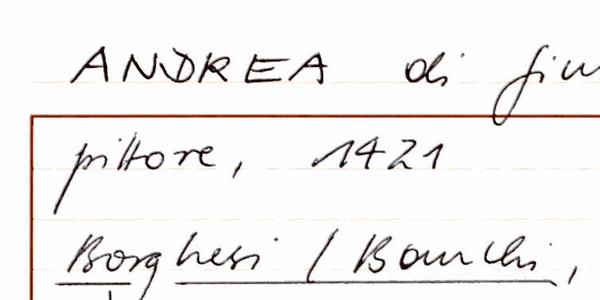 ANDREA di
pittore, 1421
Borghesi / Banchi,